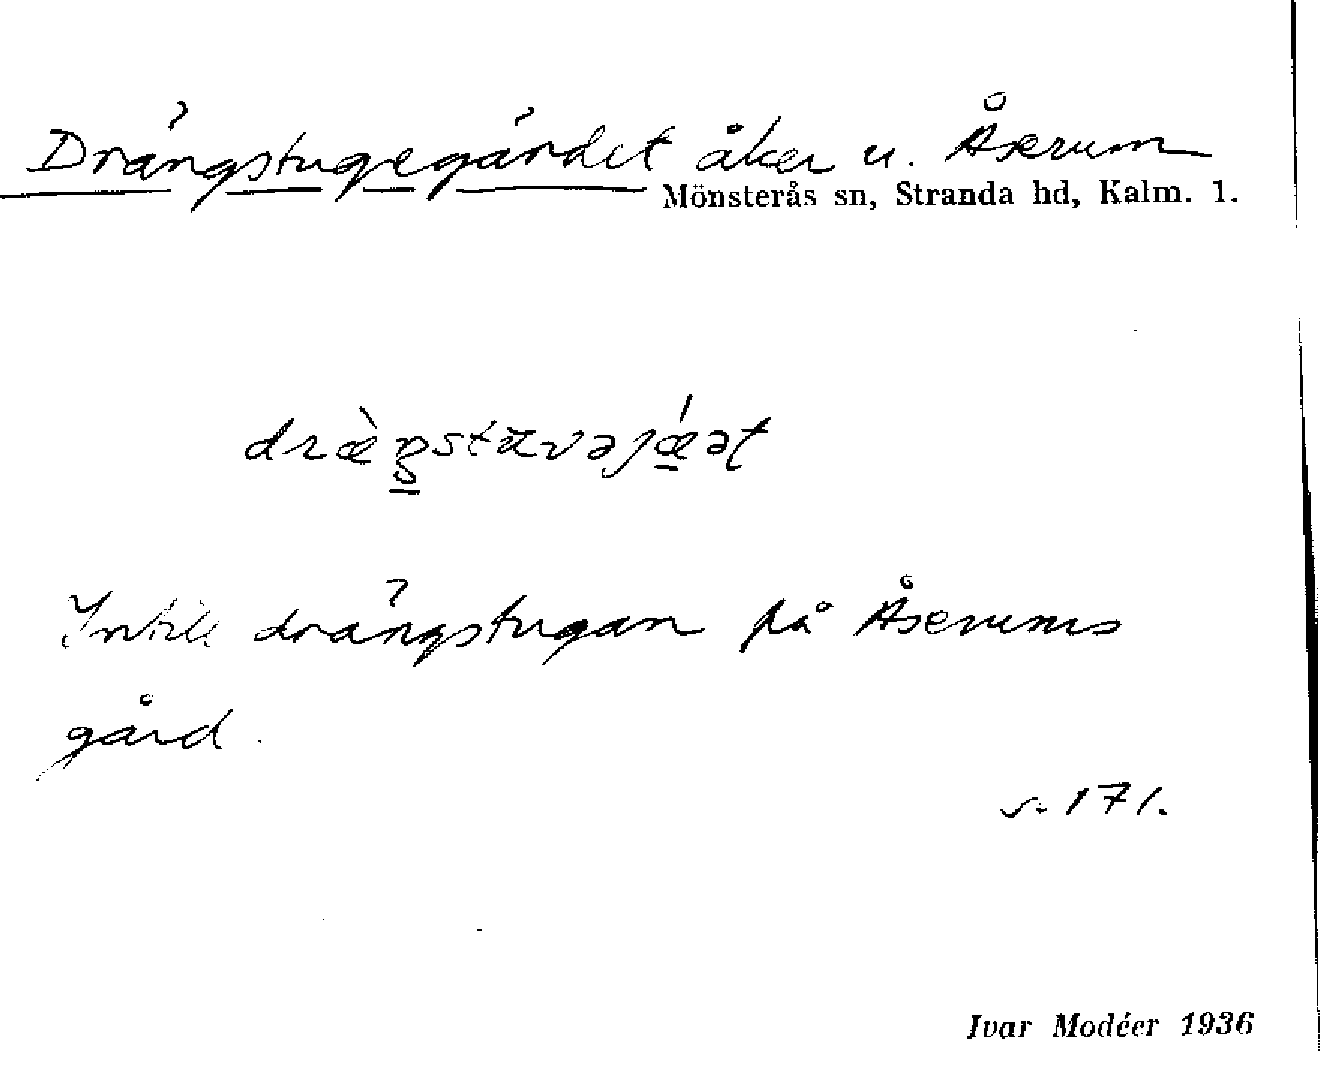 Drängstugegärdet åker u. Åserum
Mönsterås sn, Stranda hd, Kalm. l.
Intill drängstugan på Åserums
gård.
s. 171.
Ivar Modéer 1936